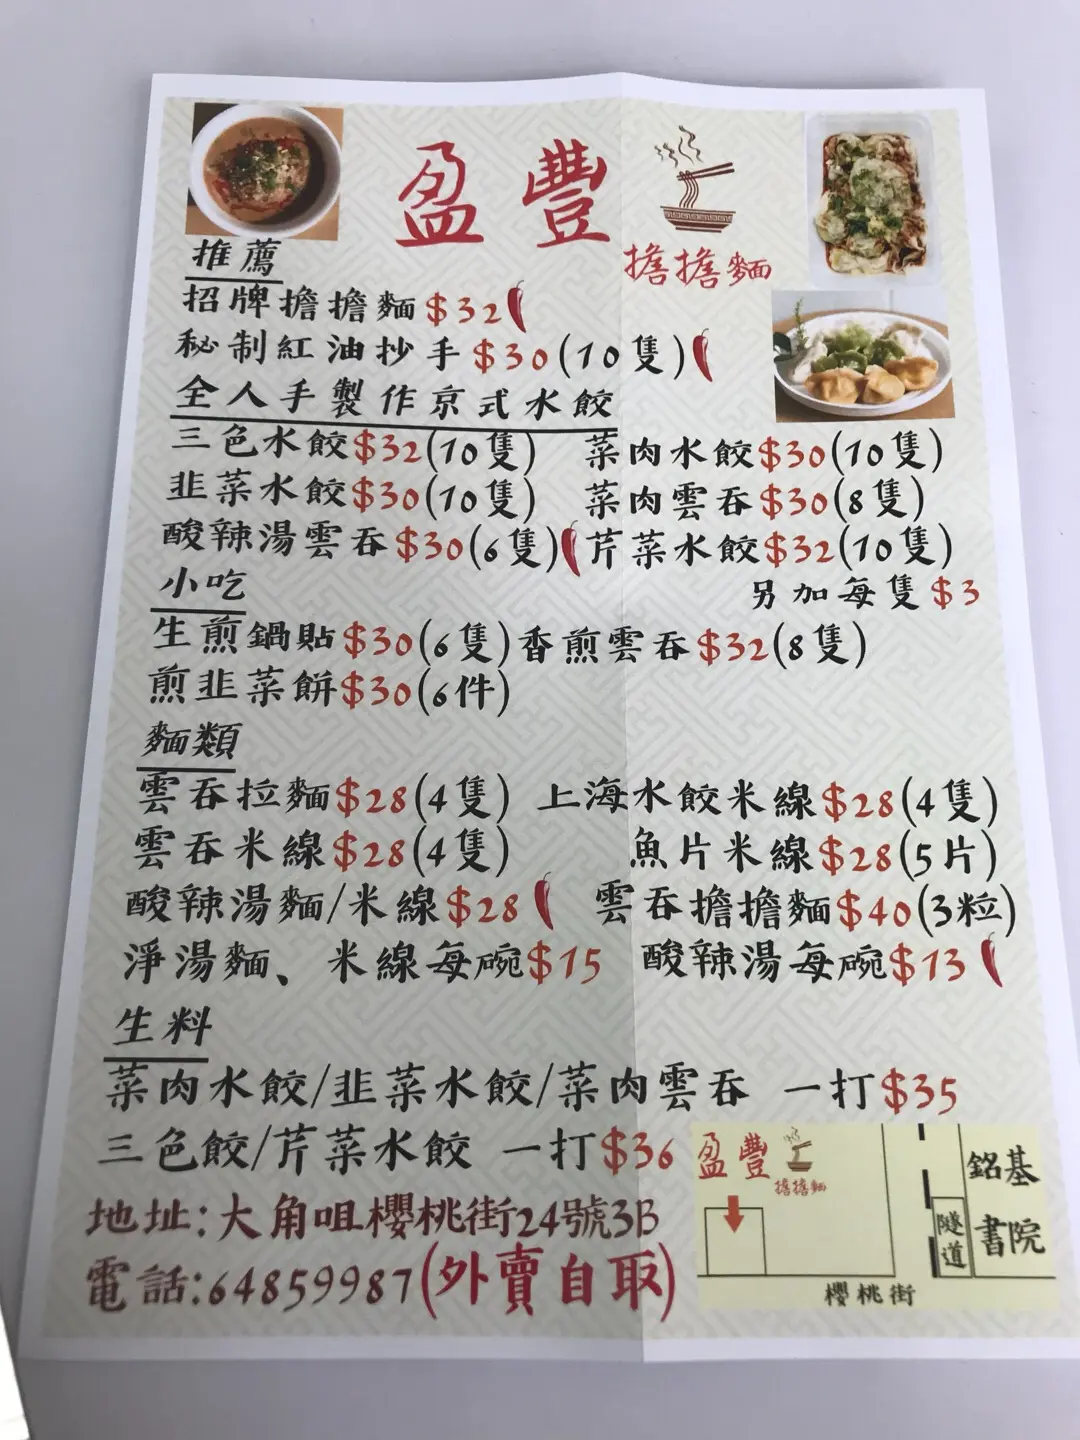 盈豐
擔擔麵
推薦
招牌擔擔麵$32
秘制紅油抄手$30(10隻)
全人手製作京式水餃
三色水餃$32(10隻) 菜肉水餃$30(10隻)
韭菜水餃$30(10隻) 菜肉雲吞$30(8隻)
酸辣湯雲吞$30(6隻) 芹菜水餃$32(10隻)
另加每隻$3
小吃
生煎鍋貼$30(6隻) 香煎雲吞$32(8隻)
煎韭菜餅$30(6件)
麵類
雲吞拉麵$28(4隻) 上海水餃米線$28(4隻)
雲吞米線$28(4隻) 魚片米線$28(5片)
酸辣湯麵/米線$28 雲吞擔擔麵$40(3粒)
淨湯麵、米線每碗$15 酸辣湯每碗$13
生料
菜肉水餃/韭菜水餃/菜肉雲吞 一打$35
三色餃/芹菜水餃 一打$36
地址:大角咀櫻桃街24號3B
電話:64859987(外賣自取)
盈豐
擔擔麵
銘基
書院
隧道
櫻桃街